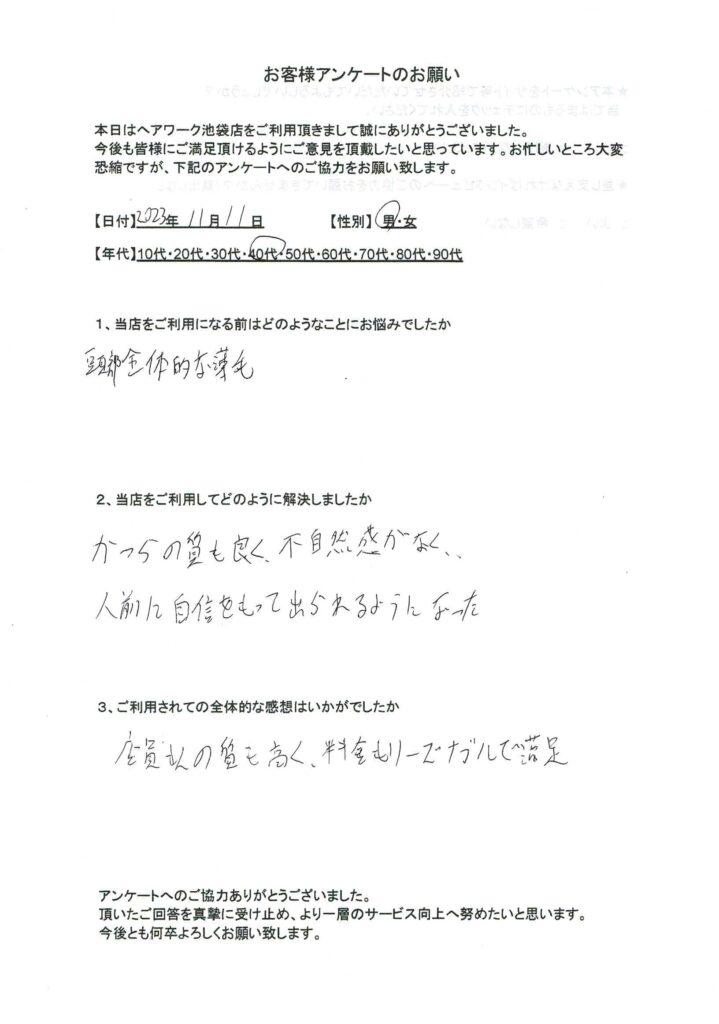 お客様アンケートのお願い
本日はヘアワーク池袋店をご利用頂きまして誠にありがとうございました。
今後も皆様にご満足頂けるようにご意見を頂戴したいと思っています。お忙しいところ大変
恐縮ですが、下記のアンケートへのご協力をお願い致します。
【日付】2023年 11月 11日 【性別】 男・女
【年代】10代・20代・30代・40代・50代・60代・70代・80代・90代
1、当店をご利用になる前はどのようなことにお悩みでしたか
頭部全体的な薄毛
2、当店をご利用してどのように解決しましたか
かつらの質も良く、不自然感がなく、
人前に自信をもって出られるようになった
3、ご利用されての全体的な感想はいかがでしたか
店員さんの質も高く、料金もリーズナブルで満足
アンケートへのご協力ありがとうございました。
頂いたご回答を真摯に受け止め、より一層のサービス向上へ努めたいと思います。
今後とも何卒よろしくお願い致します。